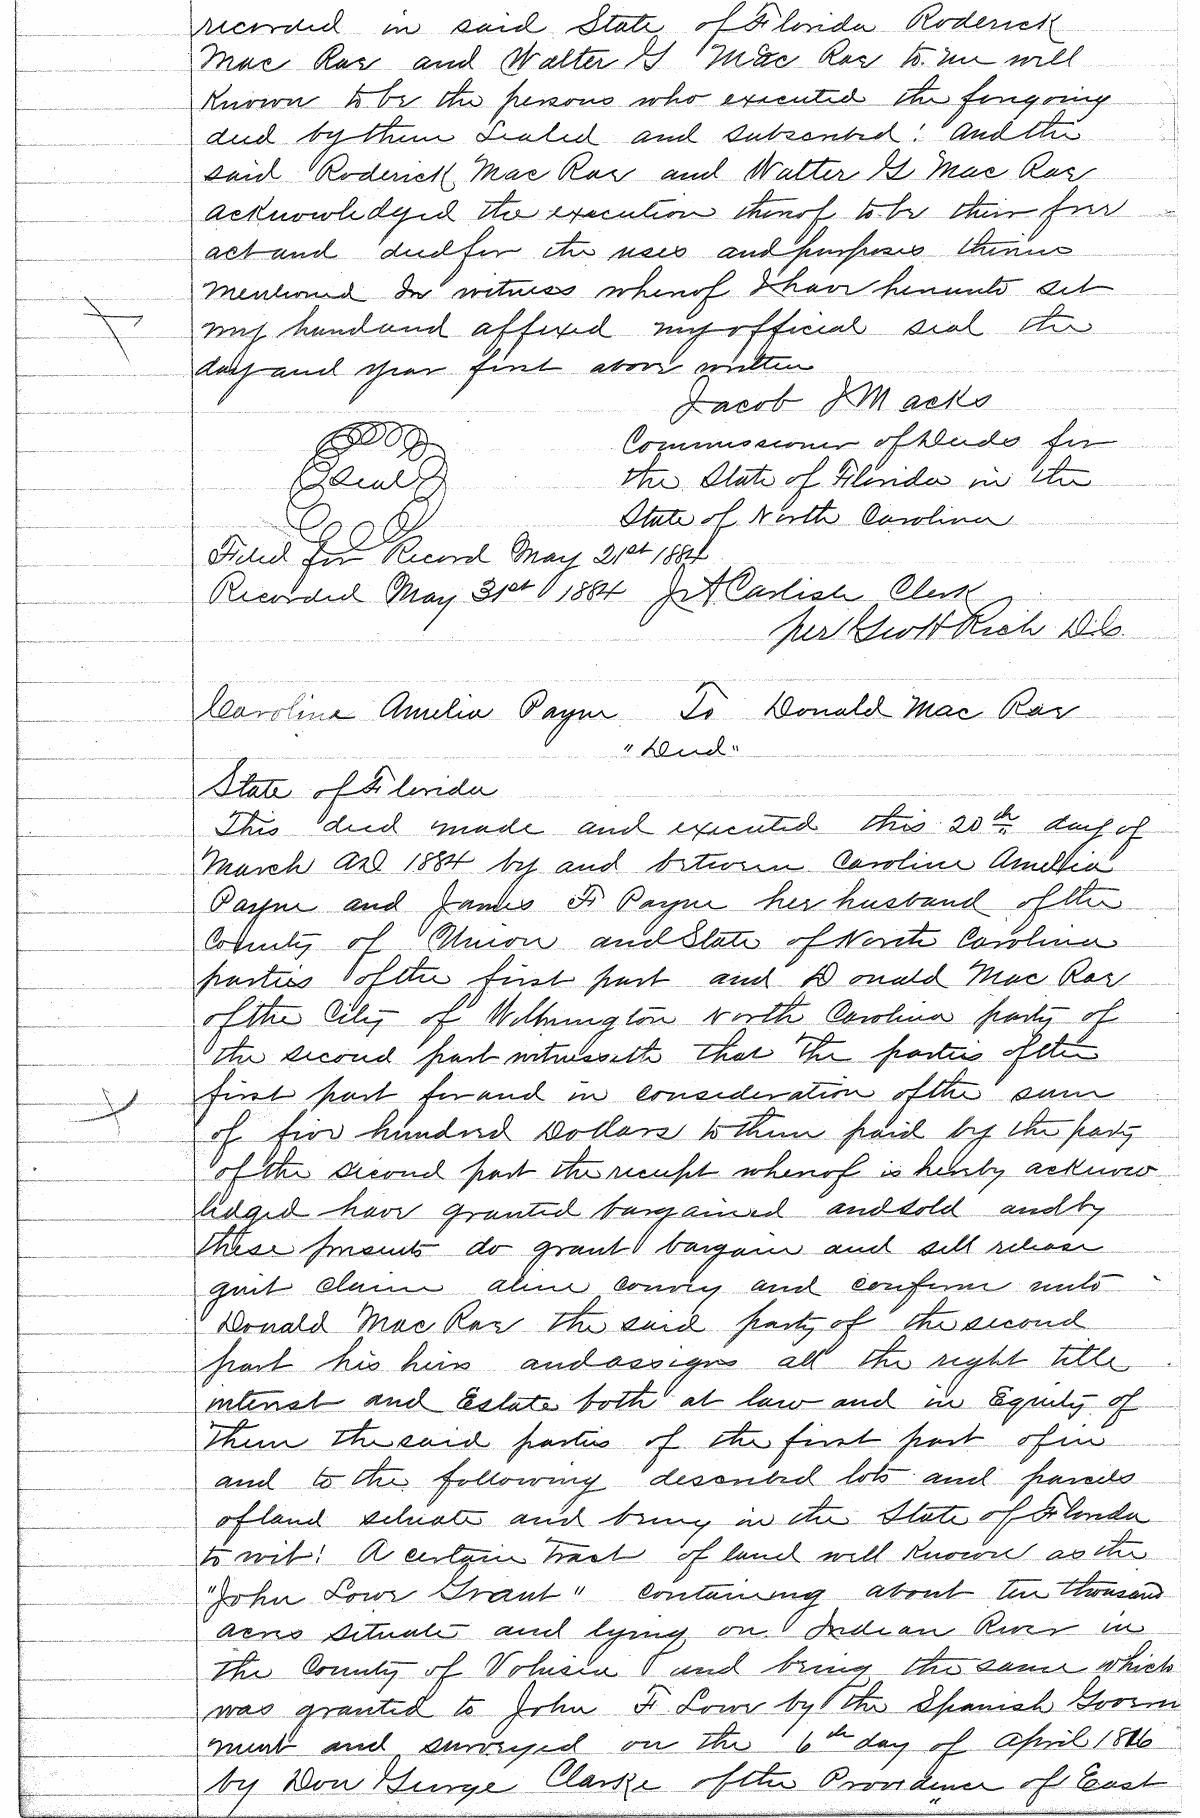 recorded in said State of Florida Roderick
Mac Rae and Walter G Mac Rae to me well
Known to be the persons who executed the foregoing
deed by them Sealed and subscribed: And the
said Roderick Mac Rae and Walter G Mac Rae
acknowledged the execution thereof to be their free
act and deed for the uses and purposes therein
mentioned In witness whereof I have hereunto set
my hand and affixed my official seal the
day and year first above written
Jacob I Macks
Commissioner of Deeds for
the State of Florida in the
Seal
State of North Carolina
Filed for Record May 21st 1884
Recorded May 31st 1884 Jr A Carlisle Clerk
per Geo H Rich D.C.
Caroline Amelia Payne To Donald Mac Rae
"Deed"
State of Florida
This deed made and executed this 20th day of
March AD 1884 by and between Caroline Amelia
Payne and James F Payne her husband of the
County of Union and State of North Carolina
parties of the first part and Donald Mac Rae
of the City of Wilmington North Carolina party of
the second part witnesseth that The parties of the
first part for and in consideration of the sum
of five hundred Dollars to them paid by the party
of the second part the receipt whereof is hereby acknow
ledged have granted bargained and sold and by
these presents do grant bargain and sell release
quit claim alien convey and confirm unto
Donald Mac Rae the said party of the second
part his heirs and assigns all the right title
interest and Estate both at law and in Equity of
Them the said parties of the first part of in
and to the following described lots and parcels
of land situate and being in the State of Florida
to wit: A certain Tract of land well Known as the
"John Lowe Grant" containing about ten thousand
acres situate and lying on Indian River in
the County of Volusia and being the same which
was granted to John F Lowe by the Spanish Govern
ment and surveyed on the 6th day of April 1816
by Don George Clarke of the Providence of East